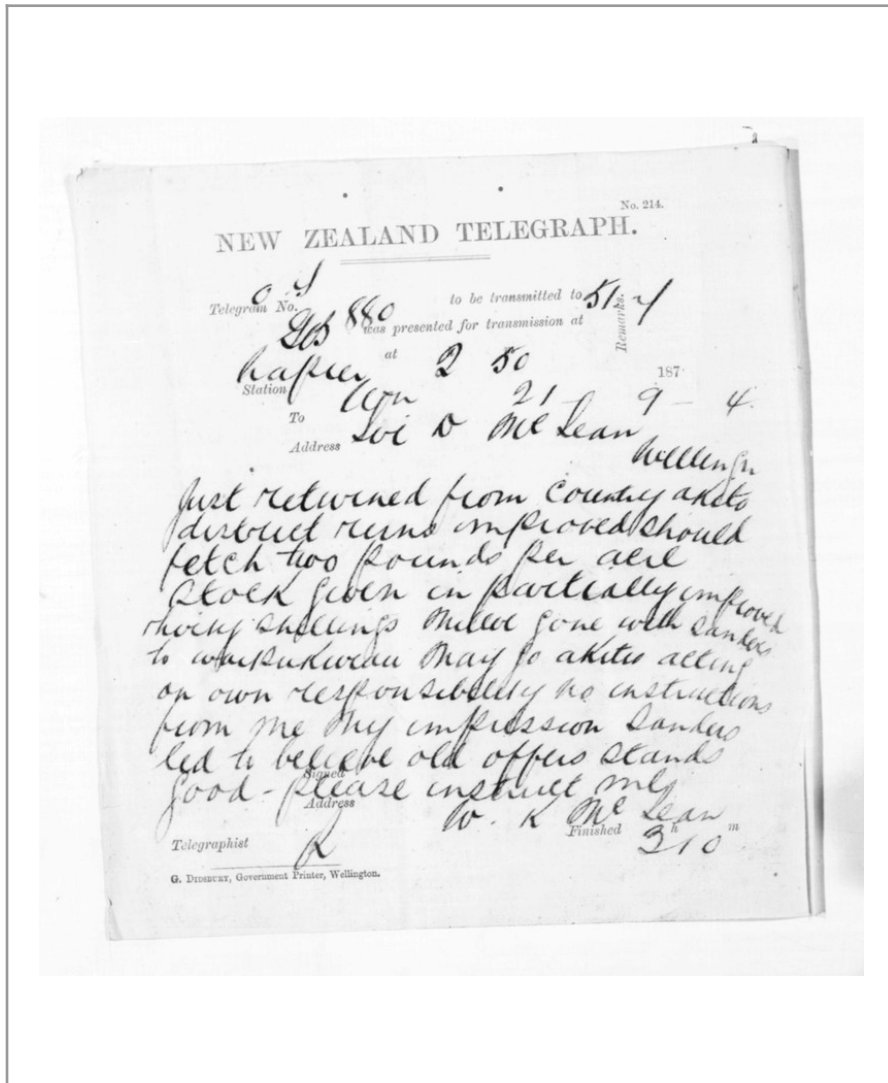 No. 214.
NEW ZEALAND TELEGRAPH.
Telegram No. 880 to be transmitted to 51
was presented for transmission at
Remarks.
Napier at 2 50
Station 187
21 9 - 4
To
Address Sir D McLean
Wellingn
Just returned from Country akito
district runs improved should
fetch two pounds per acre
Stock given in partially improved
thirty shillings gone with Sanders
to waipukurau May go akitio acting
on own responsibility no instructions
from me My impression Sanders
led to believe old offers stands
good - please instruct me
Signed
Address W. K McLean
Telegraphist Finished 3 h 10 m
G. DIDSBURY, Government Printer, Wellington.